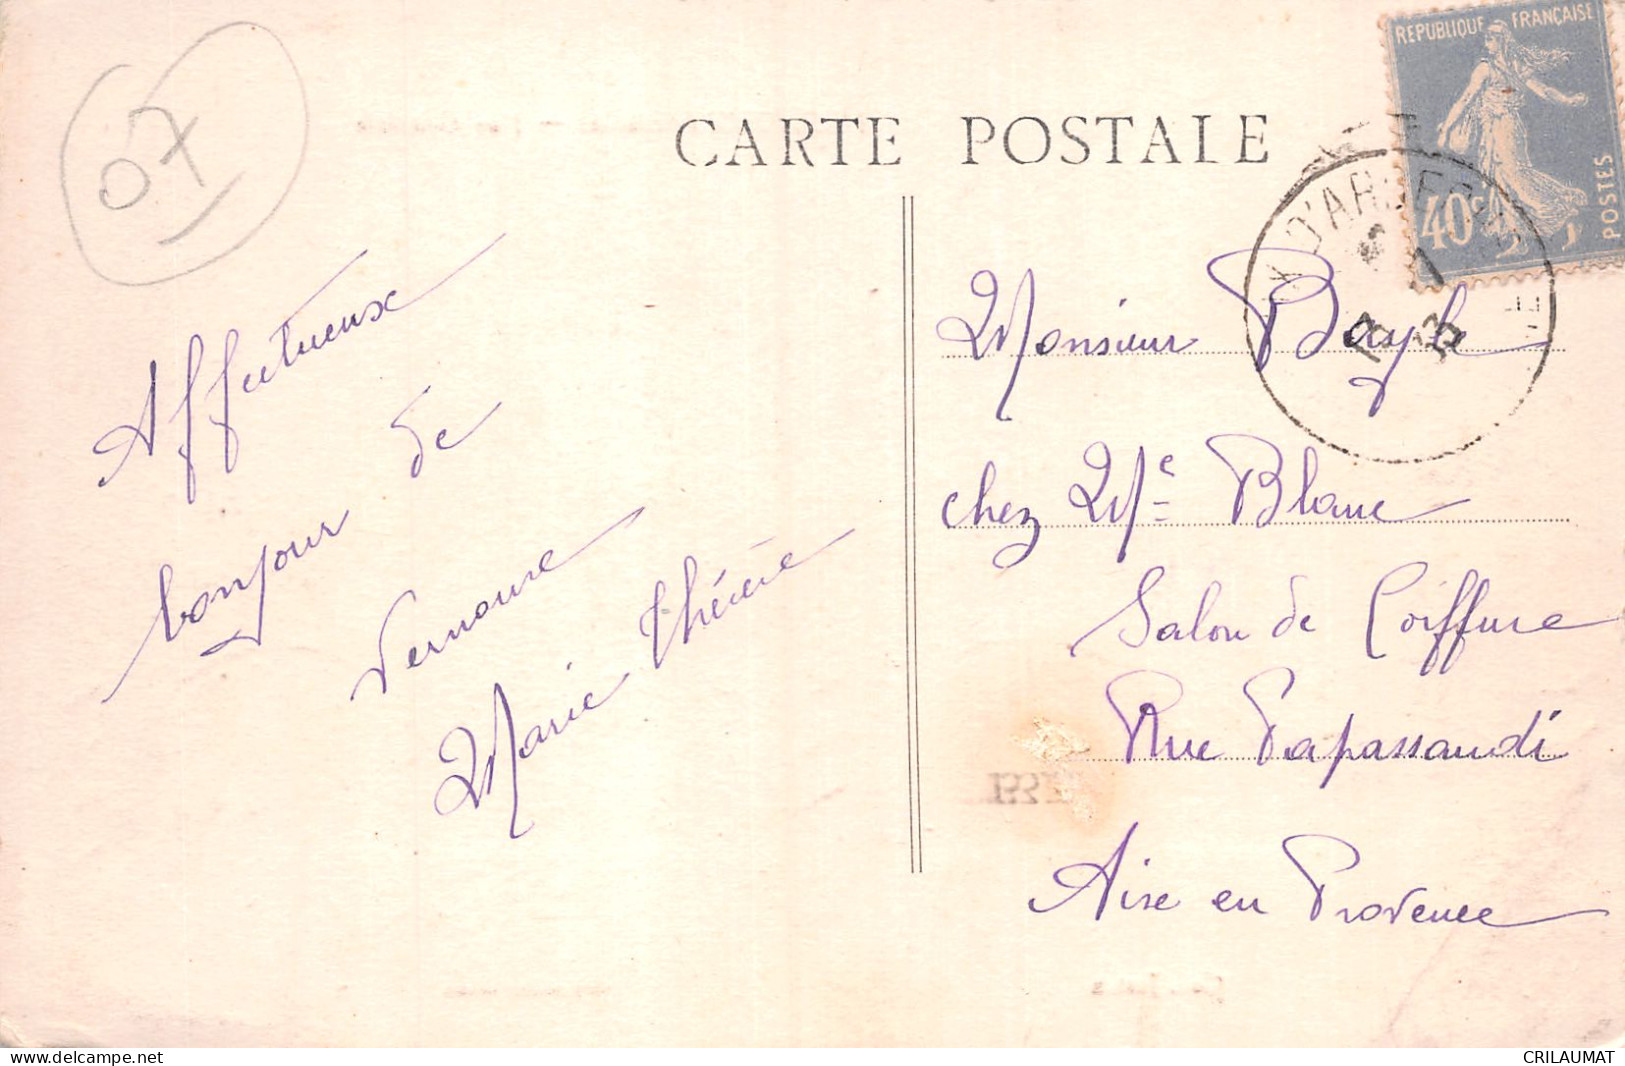 07
CARTE POSTALE
REPUBLIQUE FRANÇAISE
40c
POSTES
Affectueux
bonjour de
Vernoux
Marie Thérèse
Monsieur Bayle
chez Me Blanc
Salon de Coiffure
Rue Papassaudi
Aixe en Provence
www.delcampe.net
CRILAUMAT